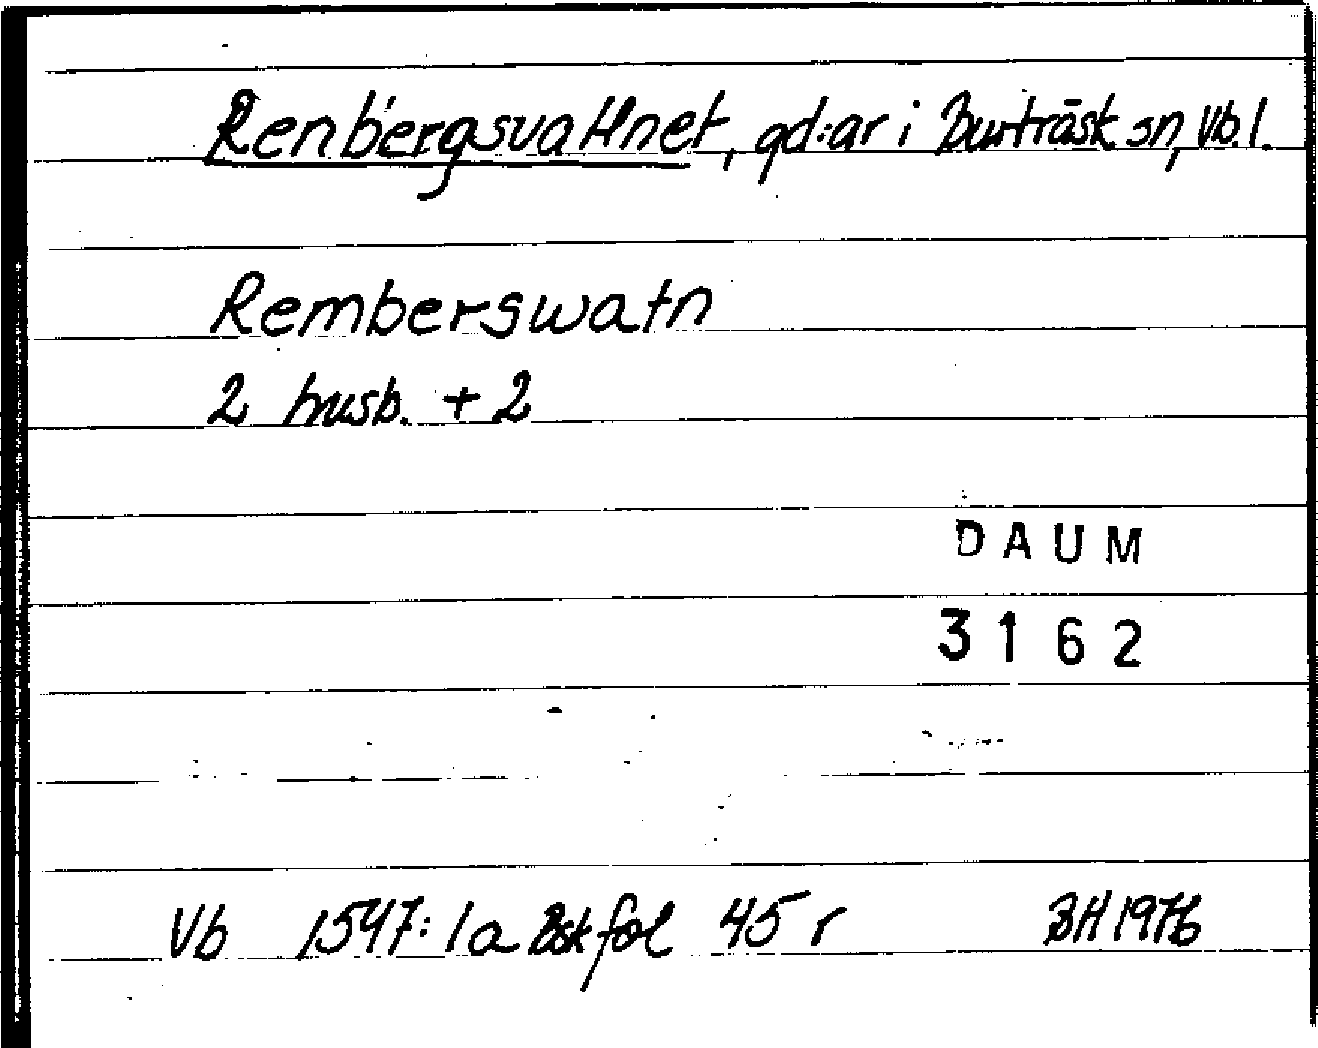 Renbergsvattnet, gd:ar i Burträsk sn, Vb. l.
Remberswatn
2 husb. + 2
DAUM
3162
Vb 1547: 1a Bsk fol 45 r BH 1976